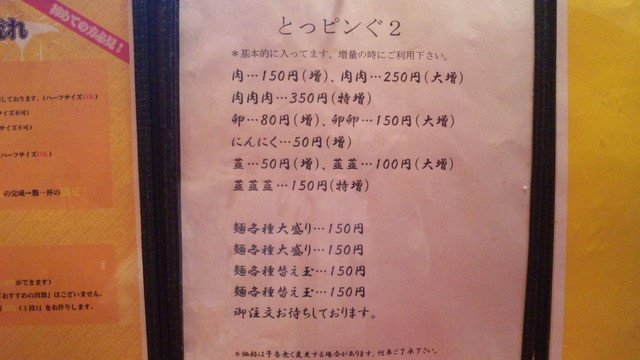 流れ
初めての方必見！
とっピンぐ２
＊基本的に入ってます、増量の時にご利用下さい。
肉…150円(増)、肉肉…250円(大増)
肉肉肉…350円(特増)
卵…80円(増)、卵卵…150円(大増)
にんにく…50円(増)
韮…50円(増)、韮韮…100円(大増)
韮韮韮…150円(特増)
麺各種大盛り…150円
麺各種大盛り…150円
麺各種替え玉…150円
麺各種替え玉…150円
御注文お待ちしております。
＊価格は予告無く変更する場合があります、何卒ご了承下さい。
しております。(ハーフサイズOK)
サイズ不可)
イズ不可)
ハーフサイズOK)
の完成→麺一杯の
ができます)
『おすすめの段数』はございません。
(1段)』をお作りします。